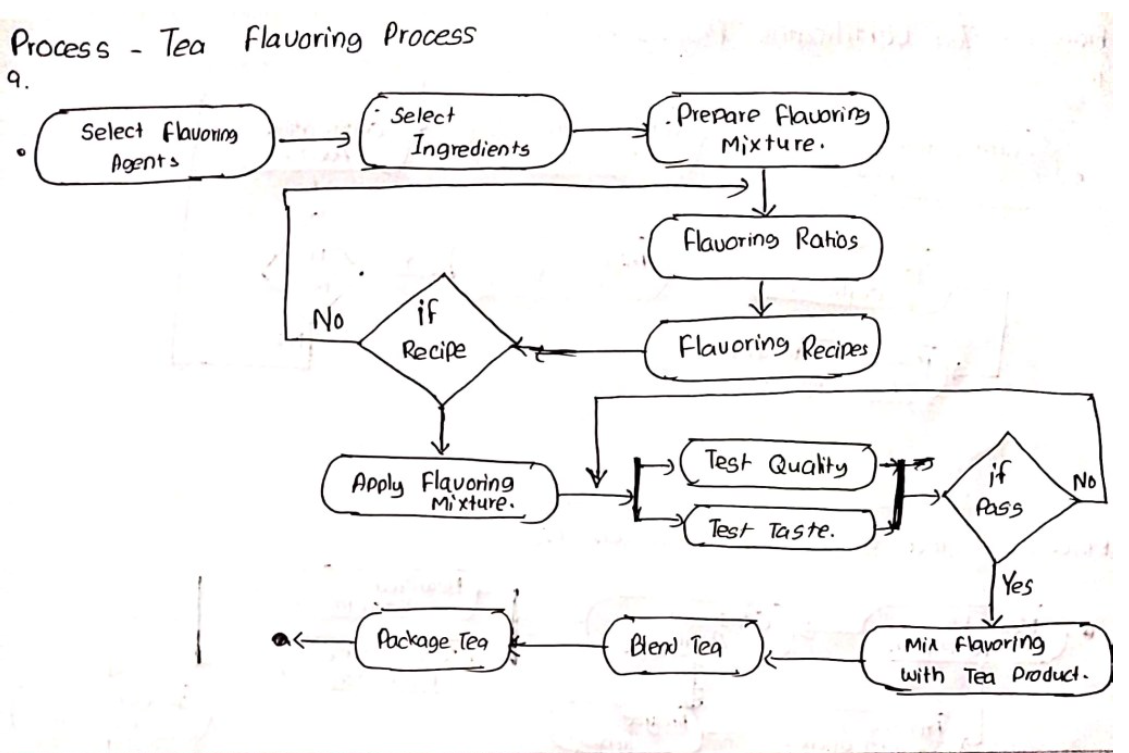 Process - Tea Flavoring Process
9.
Select Flavoring
Agents
Select
Ingredients
Prepare Flavoring
Mixture.
Flavoring Ratios
Flavoring Recipes
if
Recipe
No
Apply Flavoring
Mixture.
Test Quality
Test Taste.
if
Pass
No
Yes
Mix Flavoring
with Tea Product.
Blend Tea
Package Tea